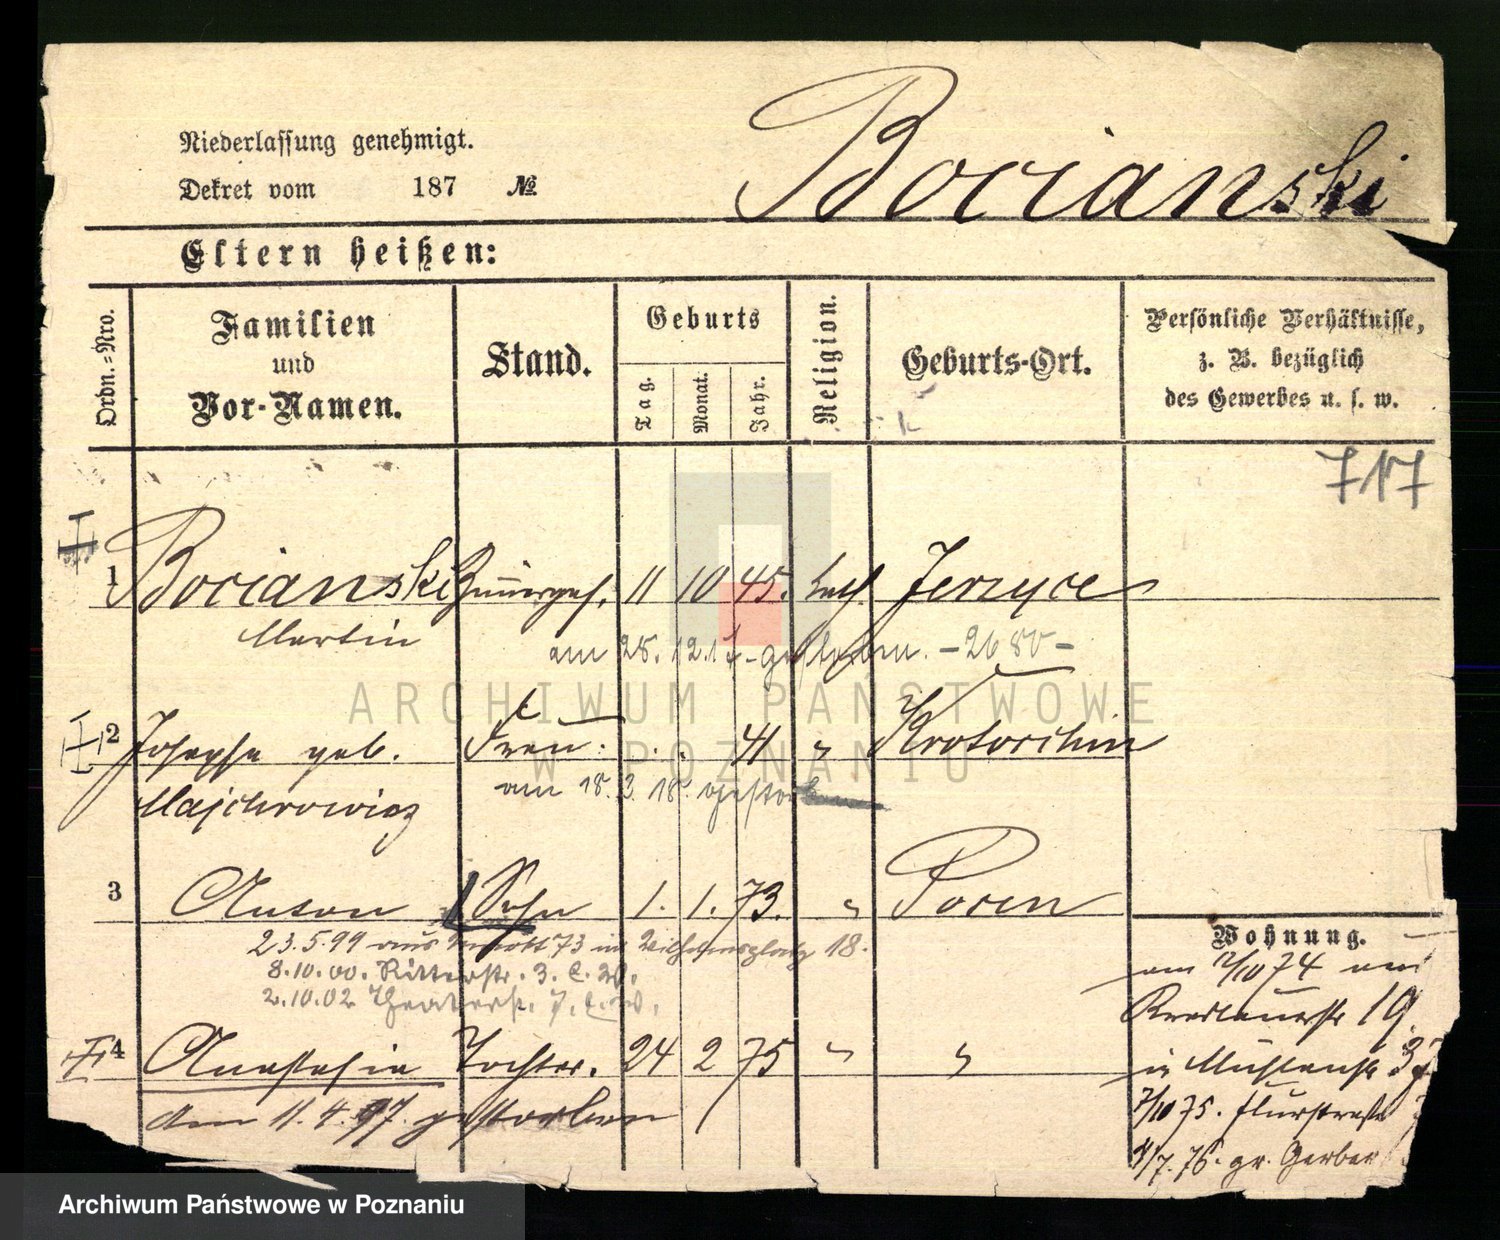 Bocianski
Niederlassung genehmigt.
Dekret vom 187 №
Eltern heißen:
Ordn.-Nro.
Familien
und
Vor-Namen.
Stand.
Geburts
Tag.
Monat.
Jahr.
Religion.
Geburts-Ort.
Persönliche Verhältnisse,
z. B. bezüglich
des Gewerbes u. s. w.
717
1 Bocianski Zimmerges. 11 10 45. kath. Jerzyce
Martin
am 28.12.17 gestorben. – 2680 –
2 Josepha geb. Frau . . 41 " Krotoschin
Majchrowicz
am 18.3.18. gestorben
3 Anton Sohn 1. 1. 73. " Posen
23.5.99 aus 73 in Wilhelmsplatz 18.
8.10.00. Ritterstr. 3.
2.10.02 Theaterstr. 7.
4 Anastasia Tochter. 24 2 75 " "
den 11.4.97. gestorben
Wohnung.
am 12/10 74 aus
Breslauerstr 19
in Mühlenstr
7/10 75. Flurstraße
4/7. 76. gr. Gerber
ARCHIWUM PAŃSTWOWE
W POZNANIU
Archiwum Państwowe w Poznaniu